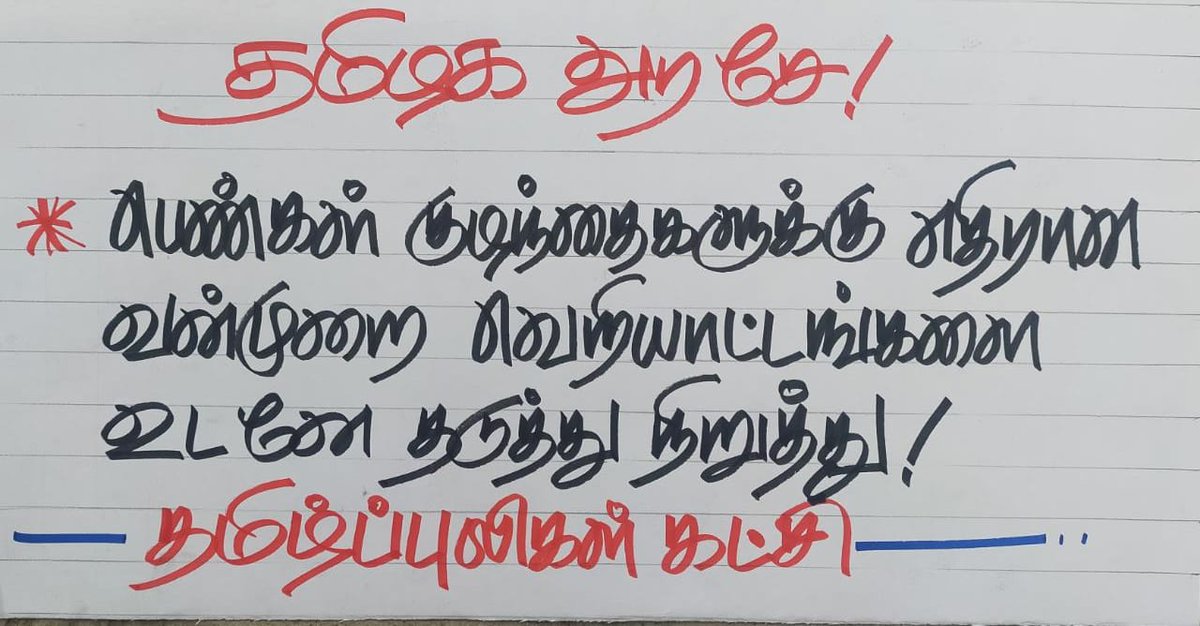 தமிழக அரசே!
* பெண்கள் குழந்தைகளுக்கு எதிரான
வன்முறை வெறியாட்டங்களை
உடனே தடுத்து நிறுத்து!
தமிழ்ப்புலிகள் கட்சி